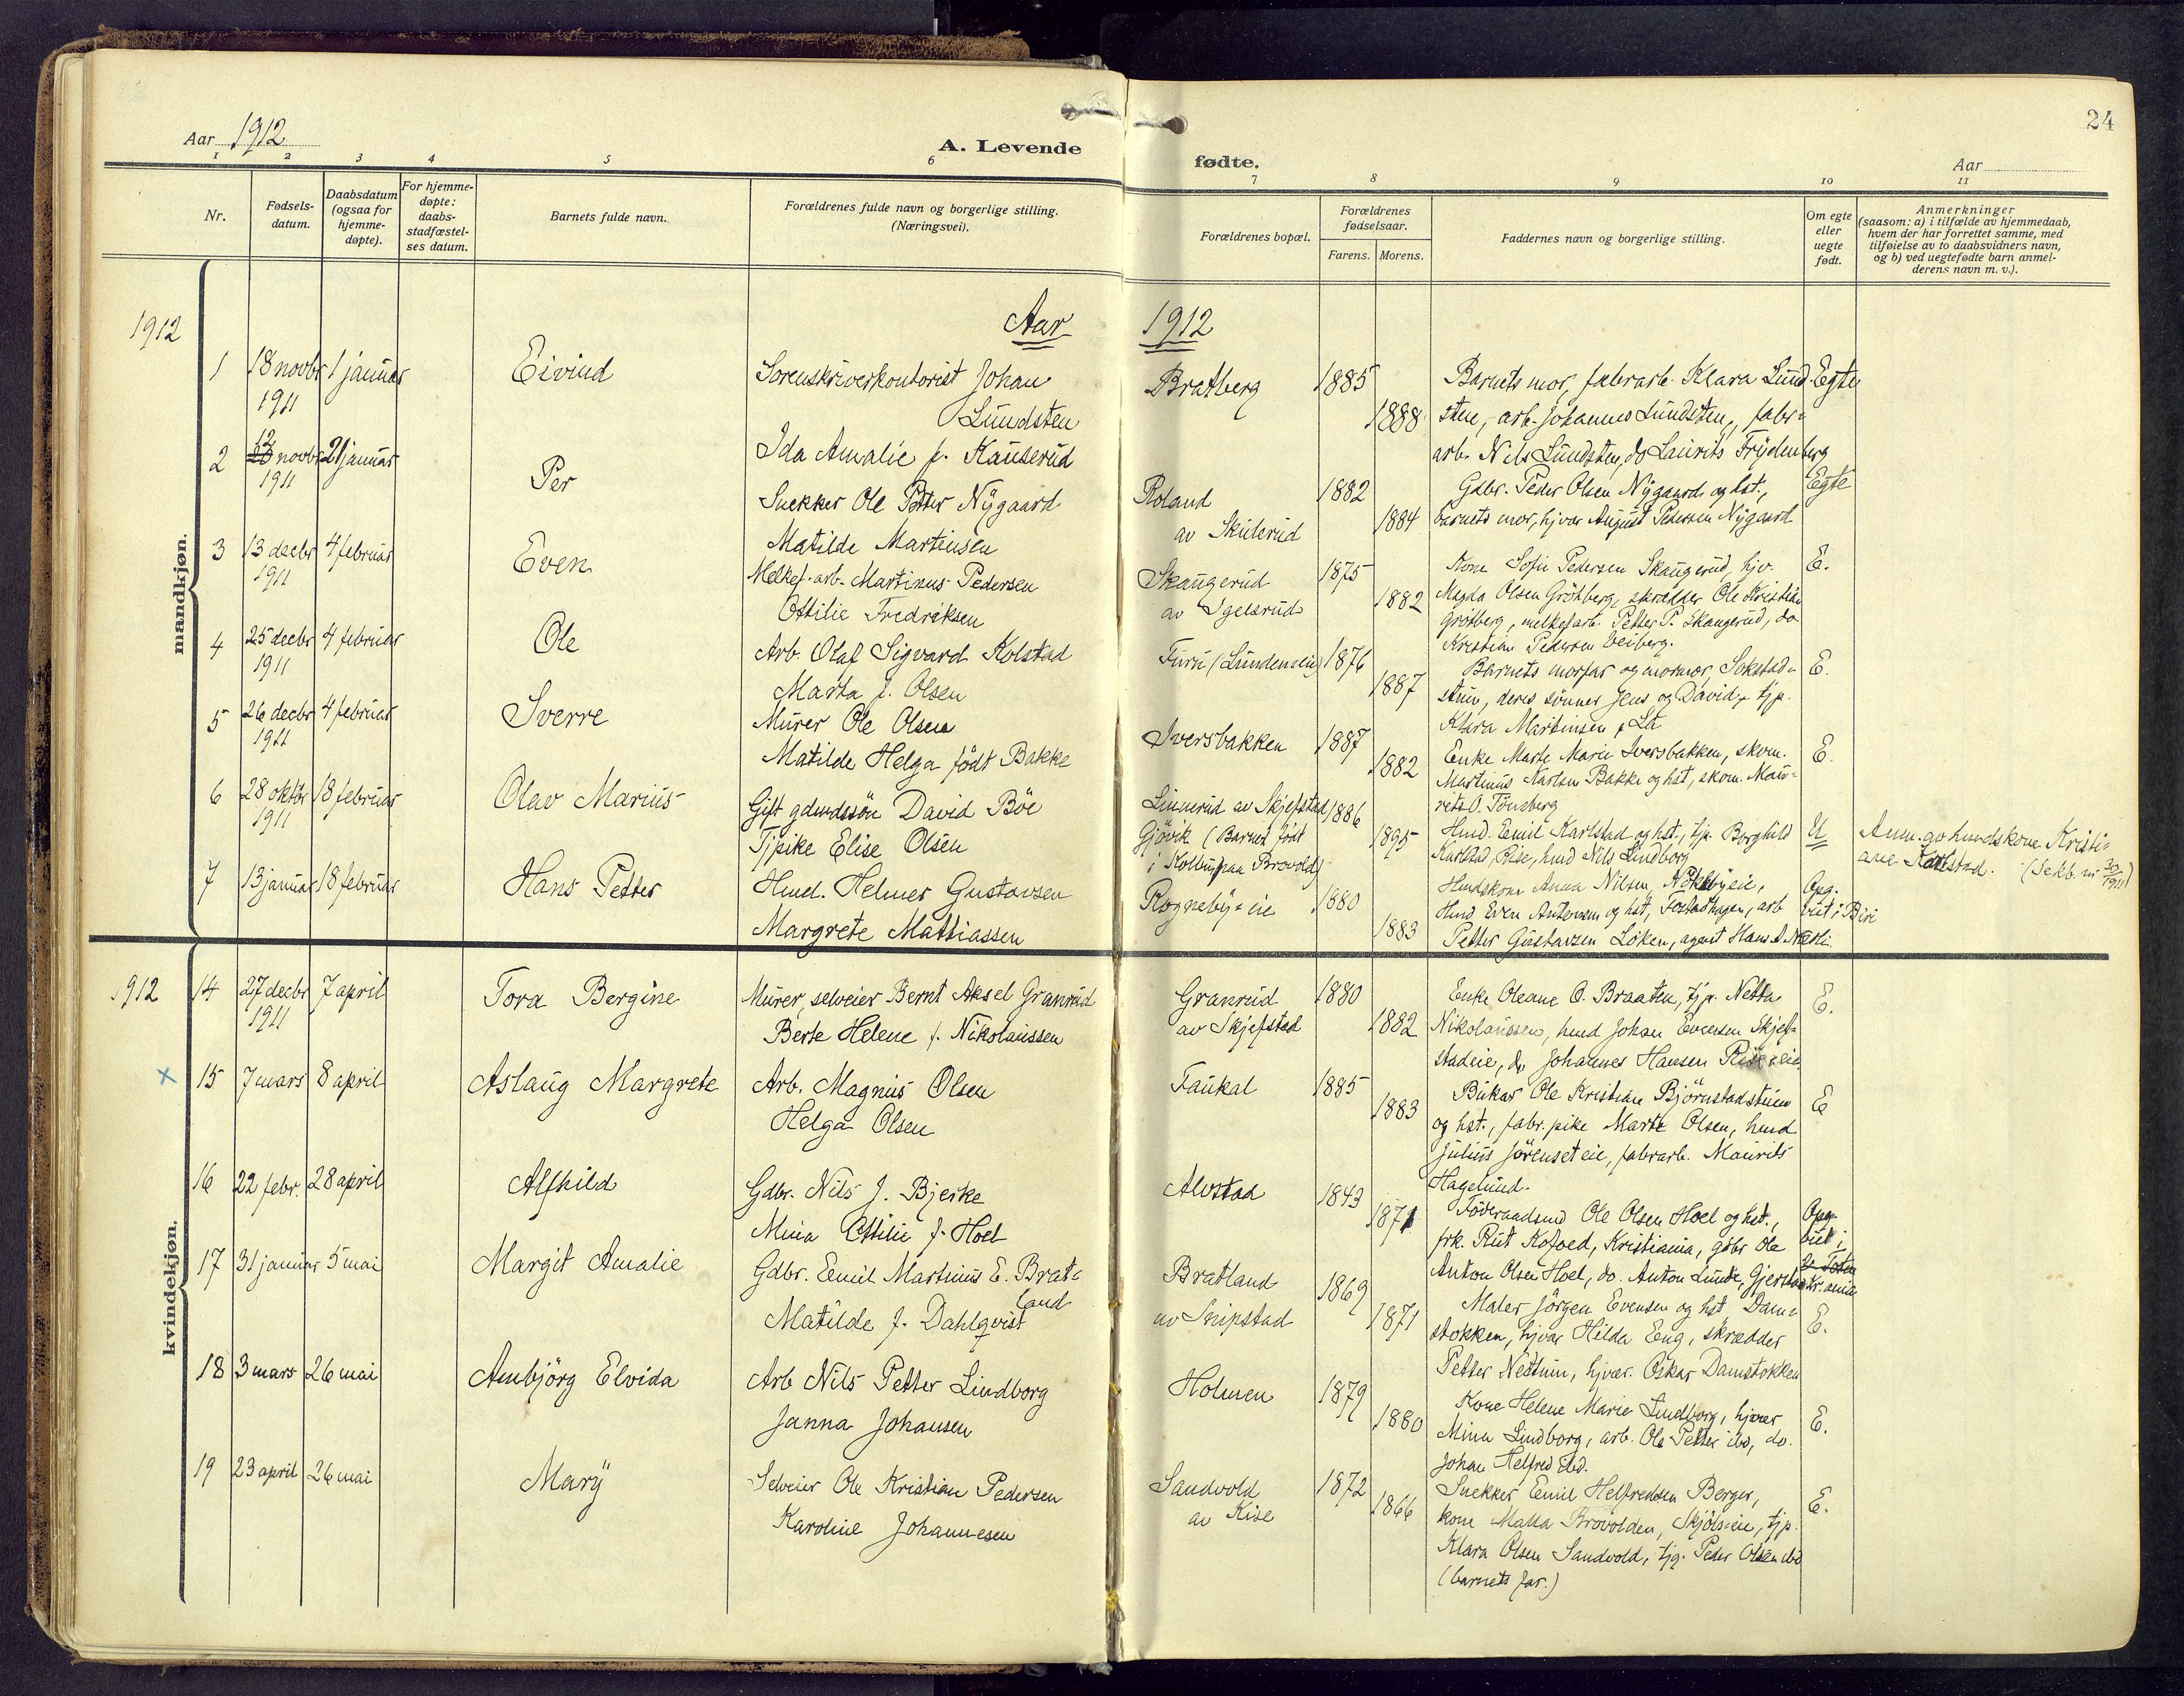 24
Aar 1912
A. Levende
fødte.
Aar
1 2 3 4 5 6 7 8 9 10 11
Nr.
Fødsels-
datum.
Daabsdatum
(ogsaa for
hjemme-
døpte).
For hjemme-
døpte:
daabs-
stadfæstel-
ses datum.
Barnets fulde navn.
Forældrenes fulde navn og borgerlige stilling.
(Næringsvei).
Forældrenes bopæl.
Forældrenes
fødselsaar.
Farens. Morens.
Faddernes navn og borgerlige stilling.
Om egte
eller
uegte
født.
Anmerkninger
(saasom: a) i tilfælde av hjemmedaab,
hvem der har forrettet samme, med
tilføielse av to daabsvidners navn,
og b) ved uegtefødte barn anmel-
derens navn m. v.).
Aar 1912
1912
mandkjøn.
1 18 novbr 1911 1 januar Eivind
Sorenskriverkontorist Johan
Lundsten
Ida Amalie f. Kauserud
Bratberg 1885 1888
Barnets mor, fabrarb. Klara Lund-
sten, arb. Johannes Lundsten, fabr-
arb. Nils Lundsten, do Laurits Frydenberg
Egte
2 12 novbr 1911 21 januar Per
Snekker Ole Petter Nygaard
Matilde Martinsen
Roland
av Skulerud
1882 1884
Gdbr. Peder Olsen Nygaard og hst.,
barnets mor, hjvar August Pedersen Nygaard
Egte
3 13 decbr 1911 4 februar Even
Melkef. arb. Martinus Pedersen
Ottilie Fredriksen
Skaugerud
av Igelsrud
1875 1882
Kone Sofie Pedersen Skaugerud, hjv.
Magda Olsen Grötberg, skrædder Ole Kristian
Grötberg, melkefarb. Petter P. Skaugerud, do
Kristian Pedersen Veiberg.
E.
4 25 decbr 1911 4 februar Ole
Arb. Olaf Sigvard Kolstad
Marta f. Olsen
Furu (Lundeneie)
1876 1887
Barnets morfar og mormor, Sokstad-
stuen, deres sönner Jens og David, tjp.
Klara Martinsen,
E.
5 26 decbr 1911 4 februar Sverre
Murer Ole Olsen
Matilde Helga født Bakke
Iversbakken
1887 1882
Enke Marte Marie Iversbakken, skom.
Martinus Karlsen Bakke og hst, skom. Mau-
rits O. Tönsberg
E.
6 28 oktbr 1911 18 februar Olav Marius
Gift gdmdssön David Böe
Tjpike Elise Olsen
Linnerud av Skjefstad
Gjövik (Barnet født
1886 1895
Hmd. Emil Karlstad og hst., tjp. Borghild
Karlstad, Rise, hmd Nils Lindborg
U
Anm. av hmdskone Kristi-
ane Karlstad. (Sekb. nr 30/1911)
7 13 januar 18 februar Hans Petter
Hmd. Helmer Gustavsen
Margrete Mattiassen
Rogneby-eie
1880 1883
Hmdskone Anna Nilsen, Nökklebyeie,
Hmd Even Antonsen og hst, Festadhagen, arb
Petter Gustavsen Löken, agent Hans A. Næsli.
Opg.
viet i Biri
1912
kvindekjøn.
14 27 decbr 1911 7 april Tora Bergine
Murer, selveier Bernt Aksel Granrud
Berte Helene f. Nikolaissen
Granrud
av Skjefstad
1880 1882
Enke Oleane O. Braaten, tjp. Netta
Nikolaissen, hmd Johan Evensen Skjef-
stadeie, do Johannes Hansen Riseeie
E.
x 15 7 mars 8 april Aslaug Margrete
Arb. Magnus Olsen
Helga Olsen
Faukal
1885 1883
Buker Ole Kristian Björnstadstuen
og hst., fabr. pike Marte Olsen, hmd
Julius Jörenseteie, fabrarb. Maurits
Hagelund.
E
16 22 febr. 28 april Alfhild
Gdbr. Nils J. Bjerke
Mina Ottilie f. Hoel
Alvstad
1843 1871
Föderaadsmd Ole Olsen Hoel og hst.,
frk. Rut Kofoed, Kristiania, gdbr Ole
Anton Olsen Hoel, do. Anton Lunde, Gjerstad
Opg.
viet i
Kr.ania
17 31 januar 5 mai Margit Amalie
Gdbr. Emil Martinus E. Brat-
land
Matilde f. Dahlqvist
Bratland
av Snipstad
1869 1871
Maler Jörgen Evensen og hst, Dam-
stokken, hjvar Hilda Eng, skrædder
Petter Nestum, hjvær. Oskar Damstokken
E.
18 3 mars 26 mai Ambjörg Elvida
Arb Nils Petter Lindborg
Janna Johansen
Holmen
1879 1880
Kone Helene Marie Lindborg, hjvær
Mina Lindborg, arb. Ole Petter ibd, do.
Johan Helfred ibd.
E.
19 23 april 26 mai Mary
Selveier Ole Kristian Pedersen
Karoline Johannesen
Sandvold
av Kise
1872 1866
Snekker Emil Helfredsen Berger,
kone Matha Brovolden, Skjölseie, tjp.
Klara Olsen Sandvold, tjg. Peder Olsen ibd
(barnets far.)
E.